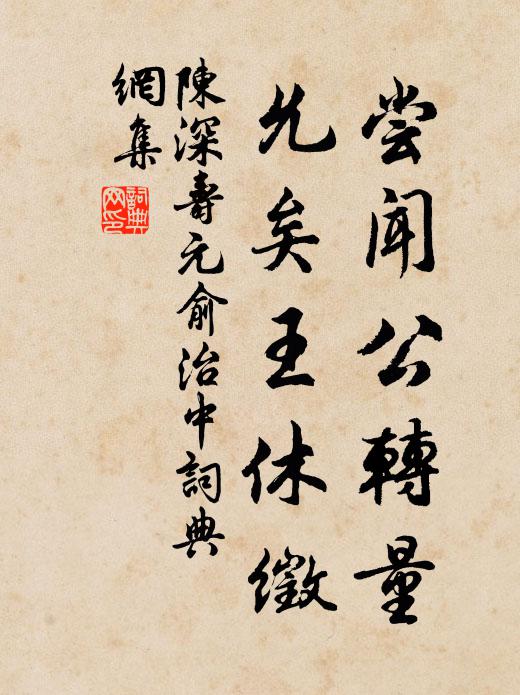 尝聞公轉量
允矣王休徵
陳深壽元俞治中詞典
網集
詞典網印